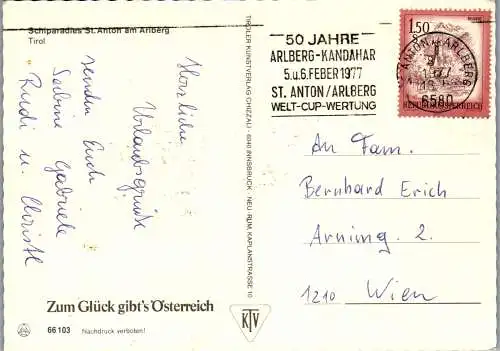 Schiparadies St. Anton am Arlberg
Tirol
Herzliche
Urlaubsgrüße
senden Euch
Sabine Gabriele
Rudi u. Christl
Zum Glück gibt's Österreich
66 103 Nachdruck verboten!
TIROLER KUNSTVERLAG CHIZZALI · 6040 INNSBRUCK · NEU-RUM, KAPLANSTRASSE 10
KTV
50 JAHRE
ARLBERG-KANDAHAR
5.u.6.FEBER 1977
ST. ANTON/ARLBERG
WELT-CUP-WERTUNG
1.50
REPUBLIK ÖSTERREICH
ST. ANTON ARLBERG
6580
An Fam.
Bernhard Erich
Arning. 2.
1210 Wien